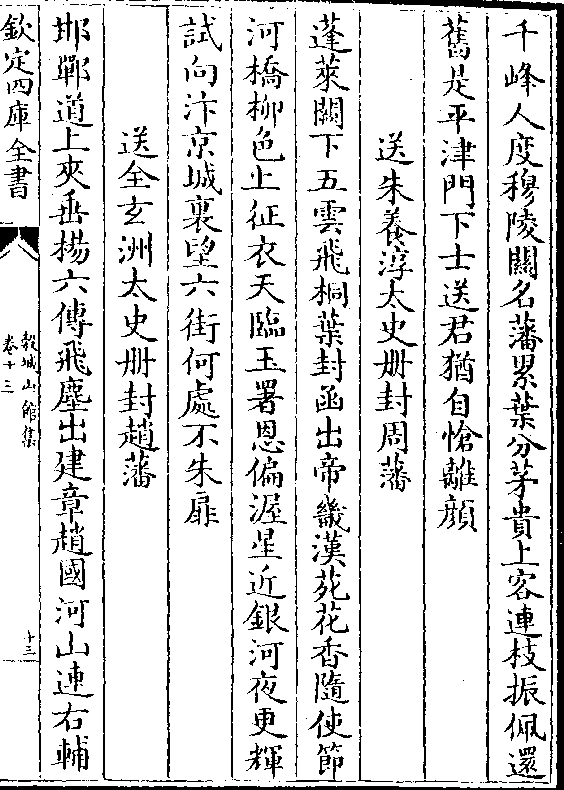 千峰人度穆陵關名藩累葉分茅貴上客連枝振佩還
舊是平津門下士送君猶自愴離顔
送朱養淳太史册封周藩
蓬萊闕下五雲飛桐葉封函出帝畿漢苑花香隨使節
河橋柳色上征衣天臨玉署恩偏渥星近銀河夜更輝
試向汴京城裏望六街何處不朱扉
送全玄洲太史册封趙藩
邯鄲道上夾垂楊六傳飛塵出建章趙國河山連右輔
欽定四庫全書
穀城山館集
卷十三
十三